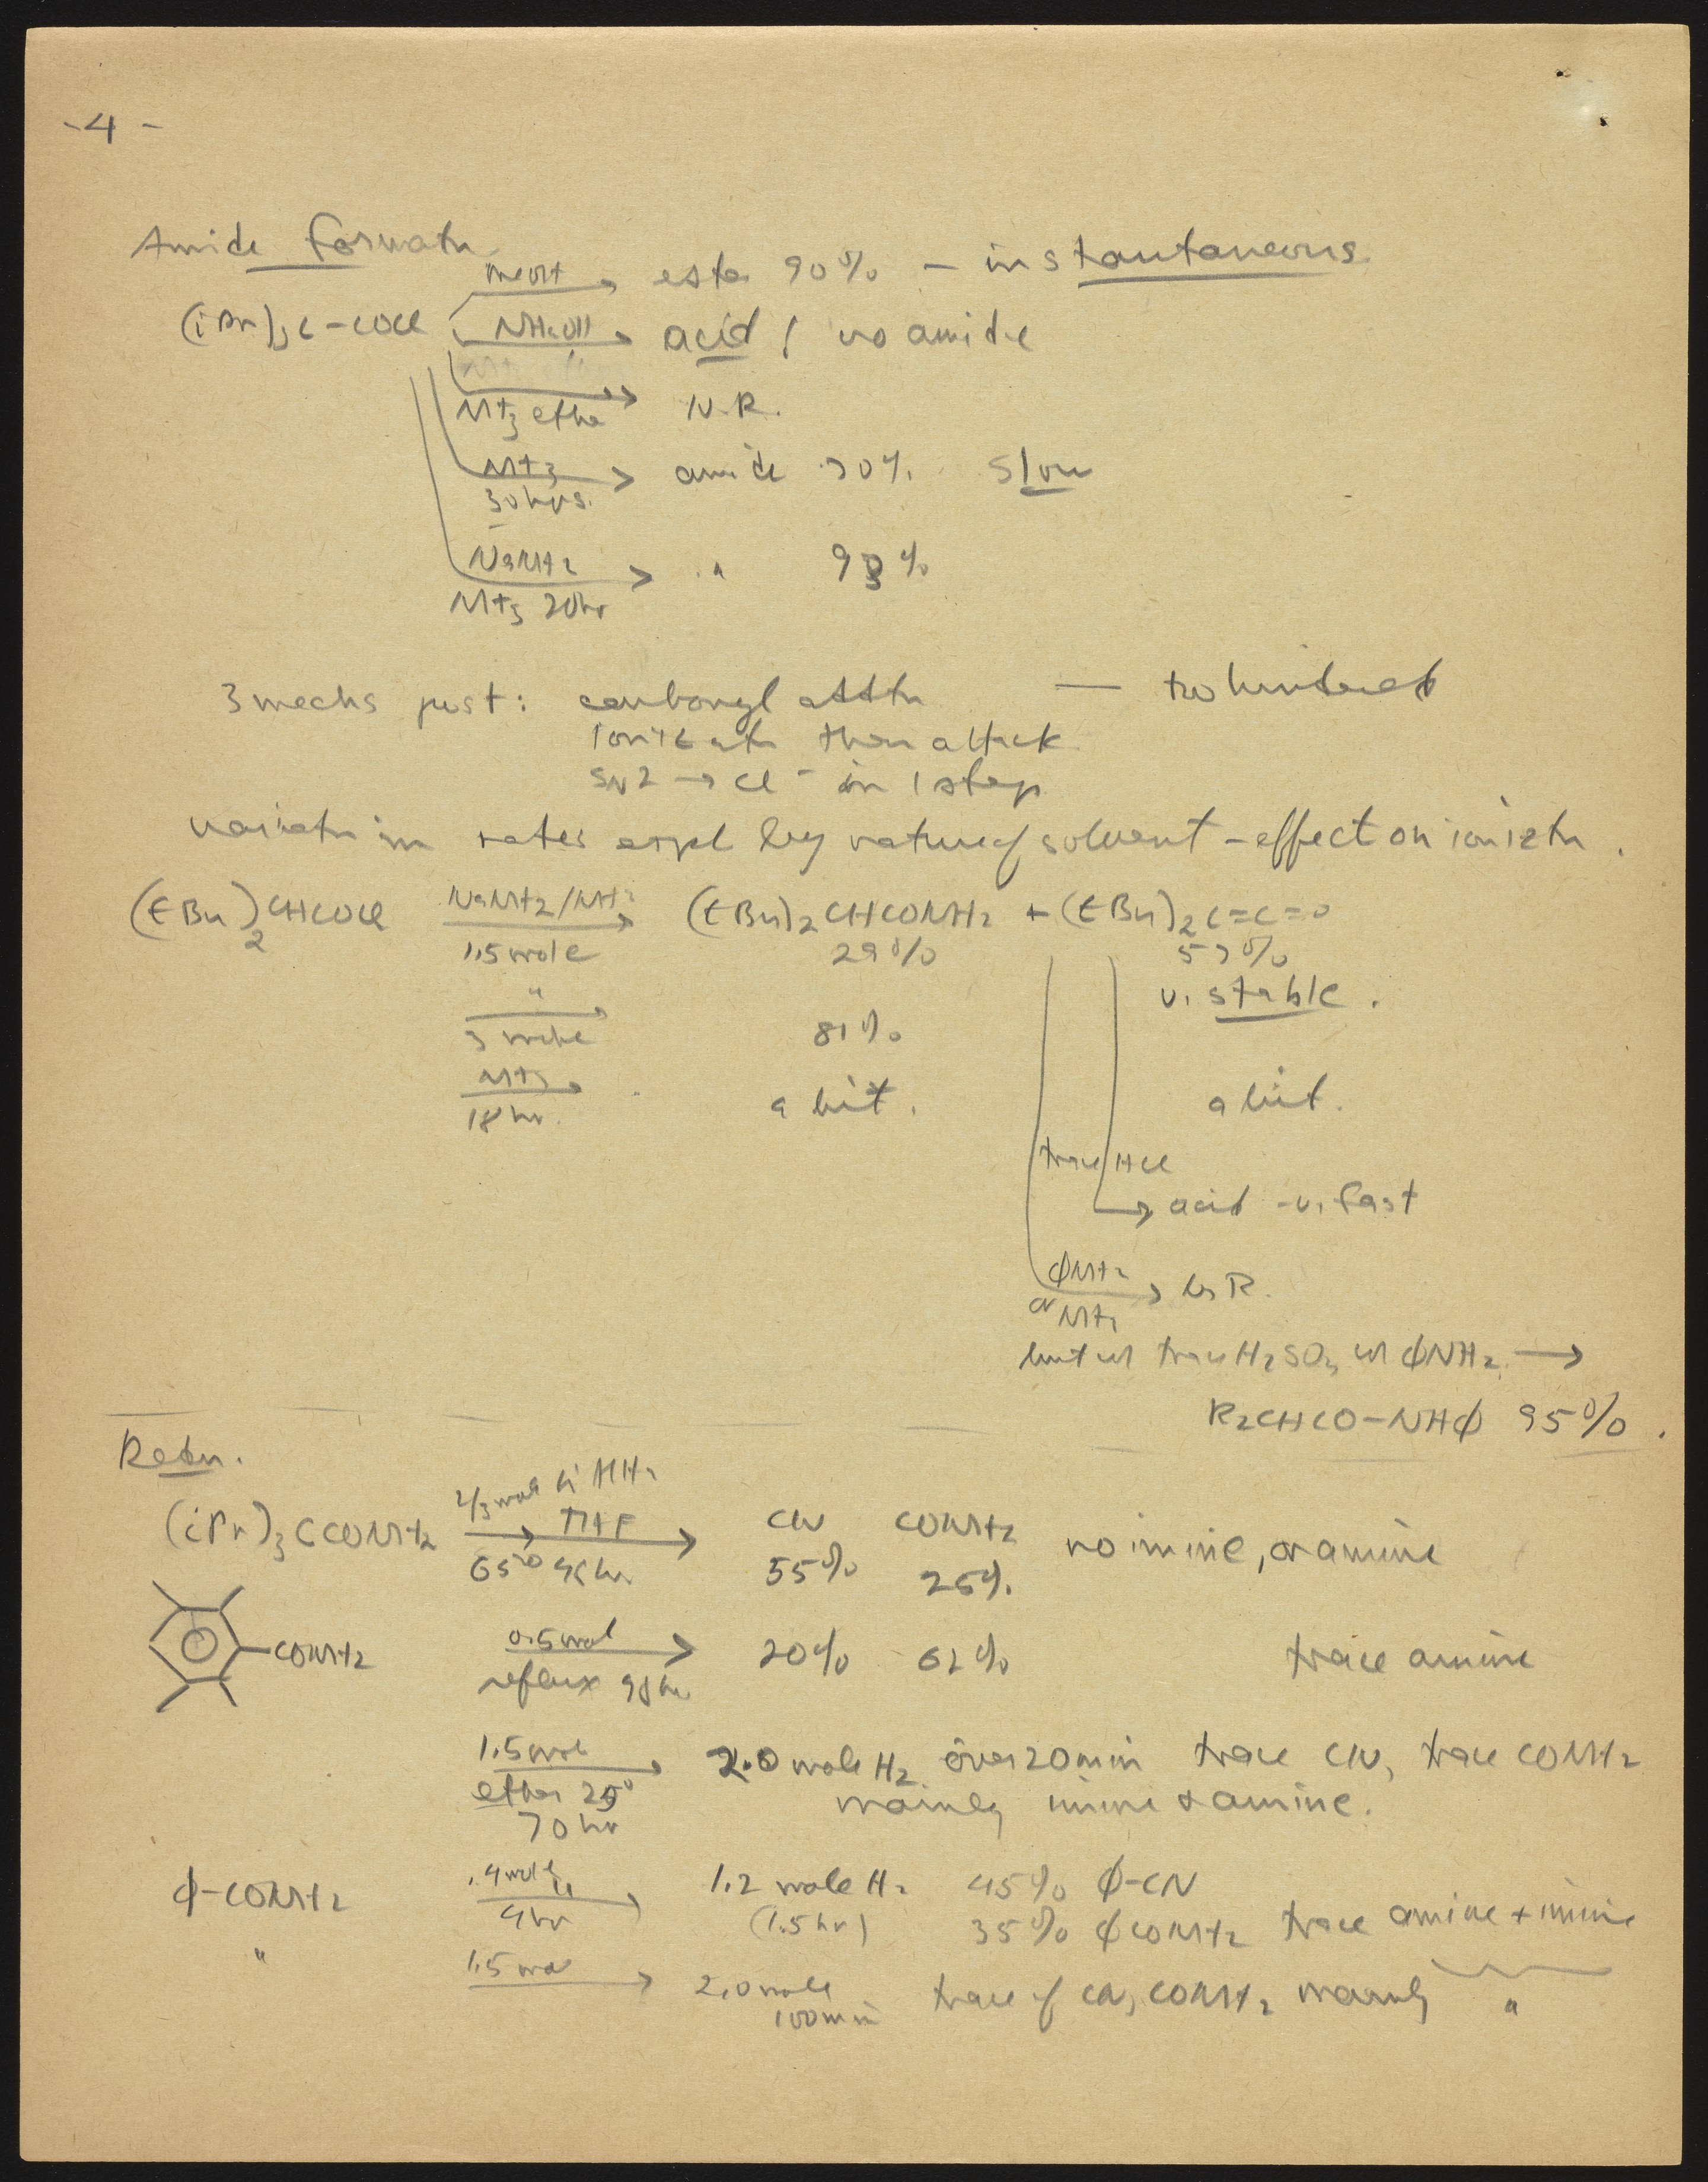 -4-
Amide Formatn
(iPr)3C-COCl MeOH → ester 90% - instantaneous
NH4OH → acid, no amide
NH3 ether → N.R.
NH3 30 hrs. → amide 70% slow
NaNH2 NH3 20hr → " 93%
3 mechs post: carbonyl attk — too hindered
Ionizatn then attack
SN2 → Cl- in 1 step
variatn in rates expl by nature of solvent - effect on ioniztn.
(tBu)2CHCOCl NaNH2/NH3 1.5 mole → (tBu)2CHCONH2 + (tBu)2C=C=O
29% 57%
v. stable.
" 3 mole → 81%
NH3 18 hr. → a bit. a bit.
trace HCl → acid - v. fast
ϕNH2 or NH3 → No R.
but w trace H2SO4 w ϕNH2 →
R2CHCO-NHϕ 95%.
Redn.
(iPr)3CCONH2 2/3 mole LiAlH4 THF 65° 96 hr → CN 55% CONH2 26% no imine, or amine
-CONH2 0.5 mol reflux 98 hr → 20% 62% trace amine
1.5 mol ether 25° 70 hr → 2.0 mole H2 over 20 min trace CN, trace CONH2
mainly imine & amine.
ϕ-CONH2 .4 mole " 4hr → 1.2 mole H2 (1.5 hr) 45% ϕ-CN
35% ϕCONH2 trace amine + imine
" 1.5 mol → 2.0 mole 100 min trace of CN, CONH2 mainly "